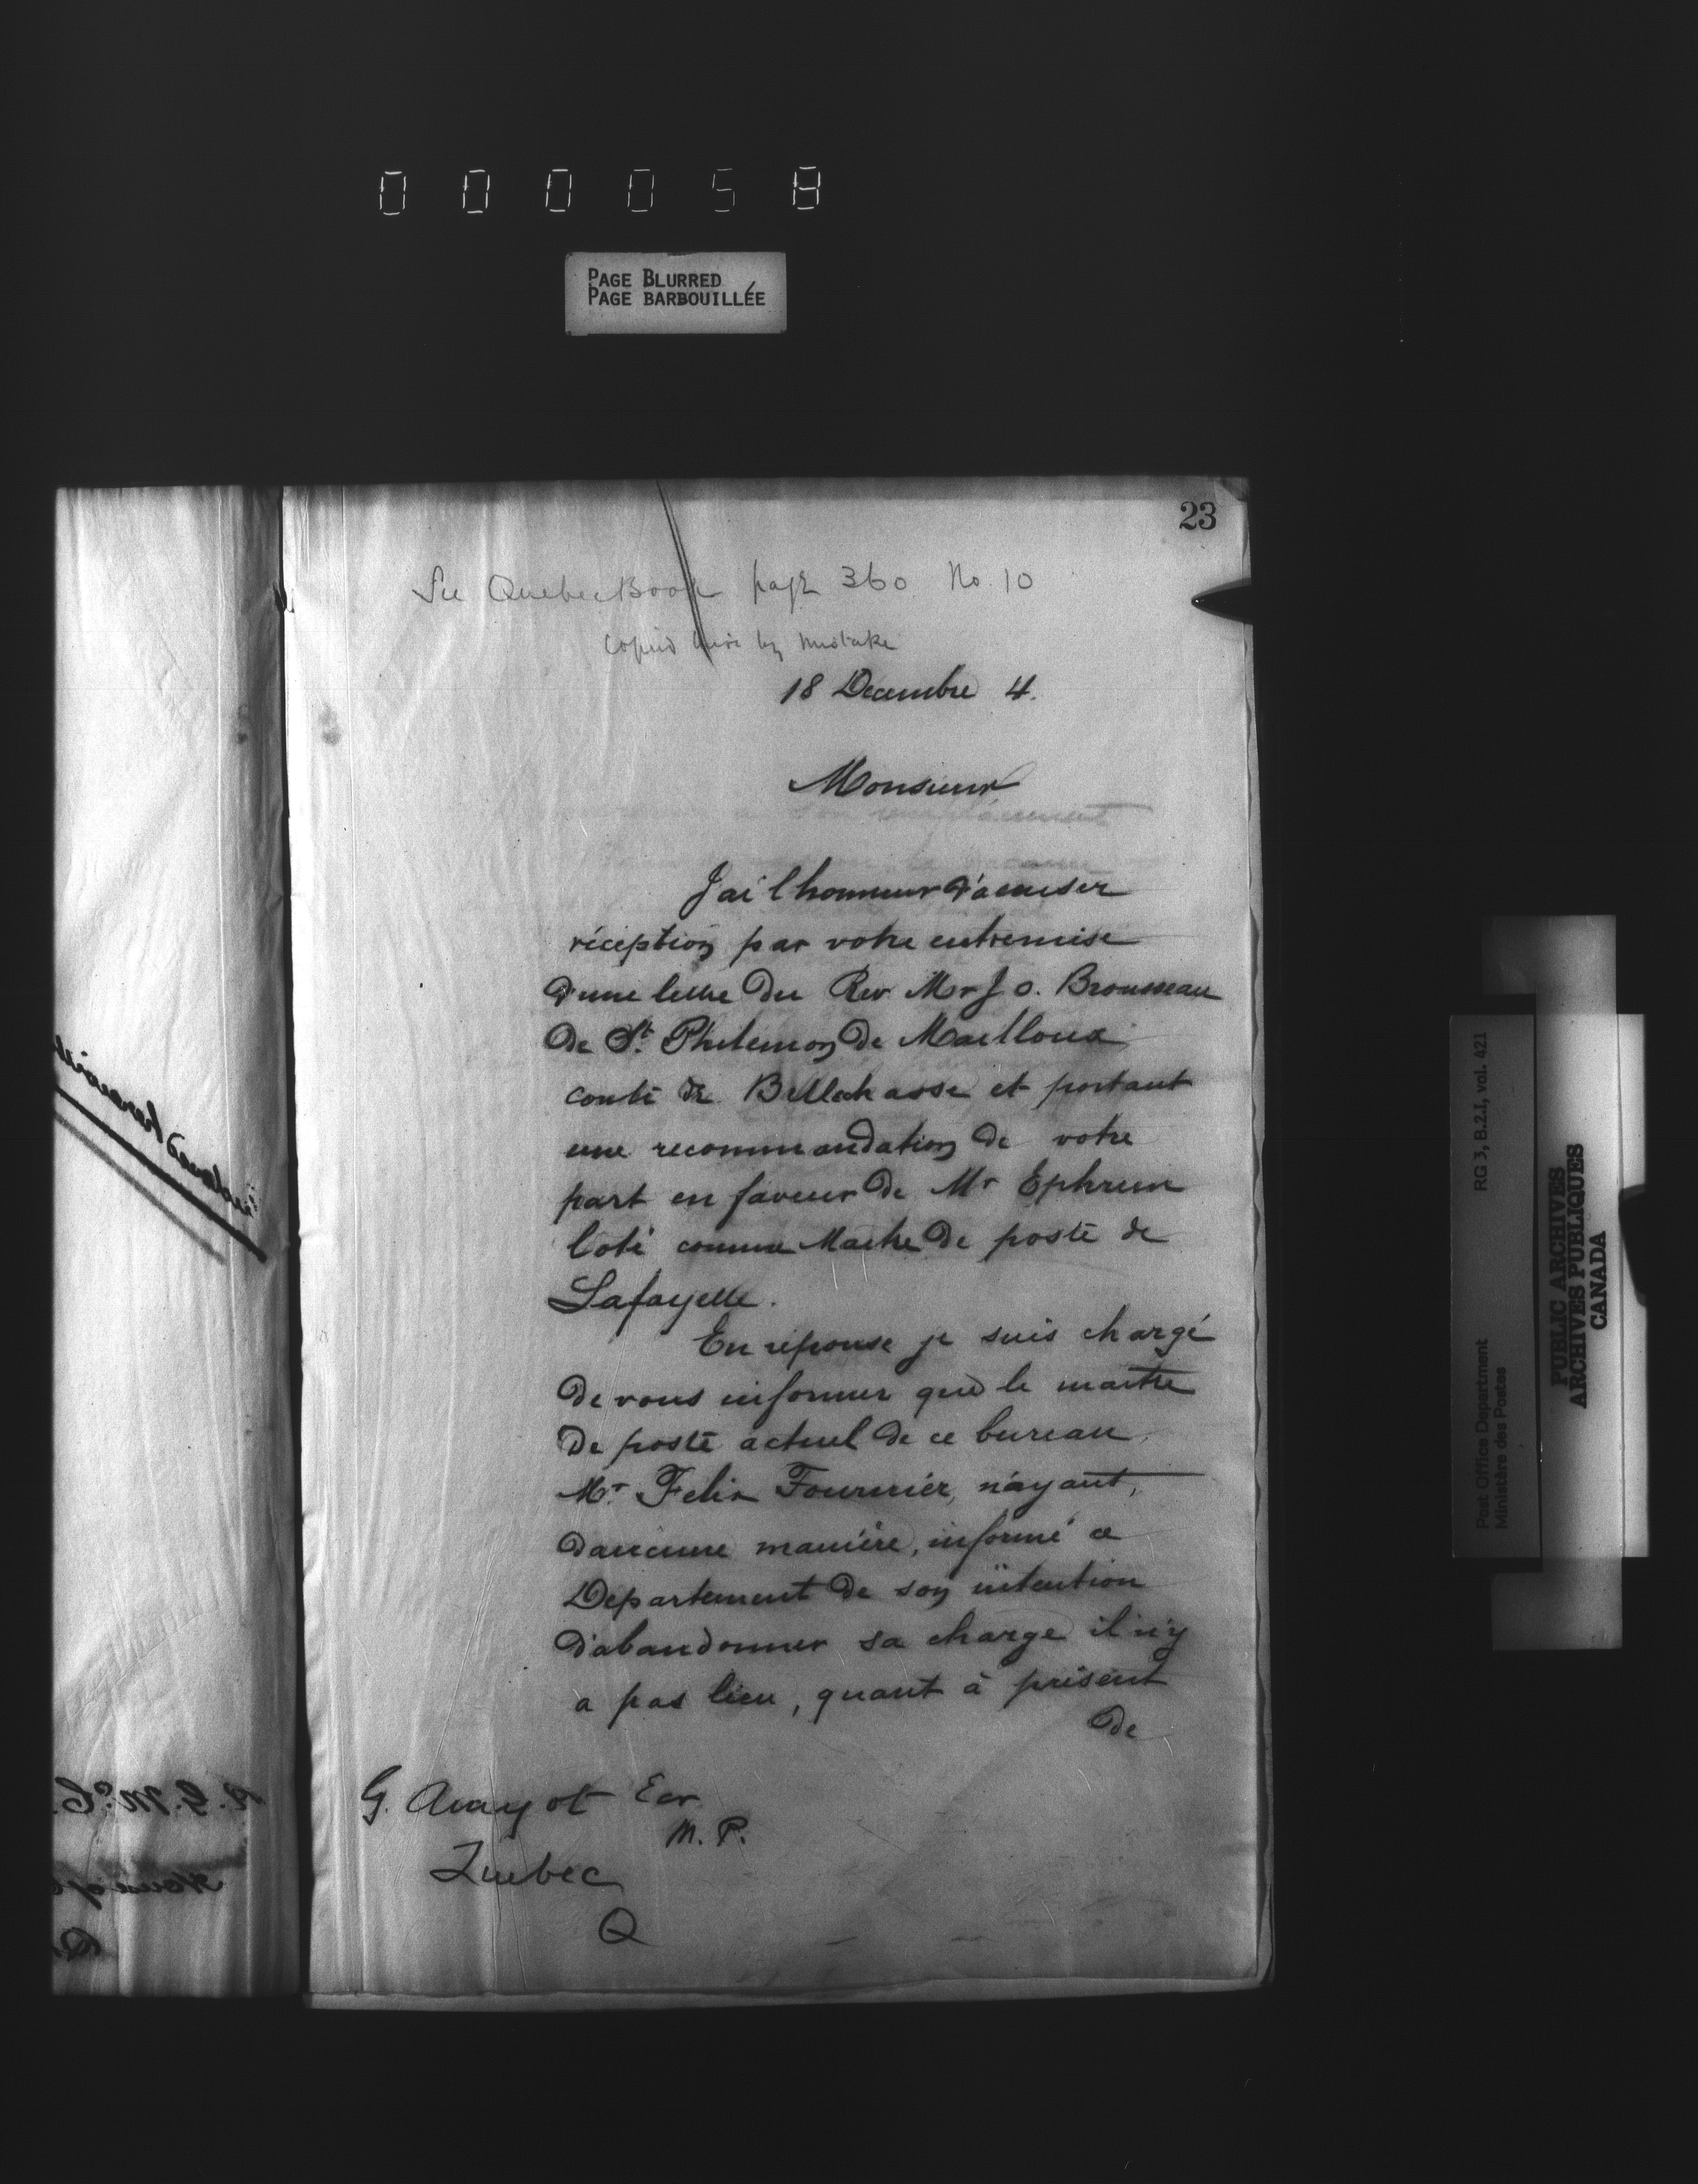 000058
PAGE BLURRED
PAGE BARBOUILLÉE
23
See Quebec Book page 360 No. 10
Copied here by mistake
18 Decembre 4.
Monsieur
J'ai l'honneur d'accuser
réception par votre entremise
d'une lettre du Rev Mr J. O. Brousseau
de St. Philemon de Mailloux
comté de Bellechasse et portant
une recommandation de votre
part en faveur de Mr Ephrem
Coté comme Maitre de poste de
Lafayette.
En réponse je suis chargé
de vous informer que le maitre
de poste actuel de ce bureau,
Mr. Felix Fournier, n'ayant,
d'aucune manière, informé ce
Departement de son intention
d'abandonner sa charge il n'y
a pas lieu, quant à présent
de
G. Amyot Ecr
M. P.
Quebec
Q
RG 3, B.2.I, vol. 421
Post Office Department
Ministère des Postes
PUBLIC ARCHIVES
ARCHIVES PUBLIQUES
CANADA